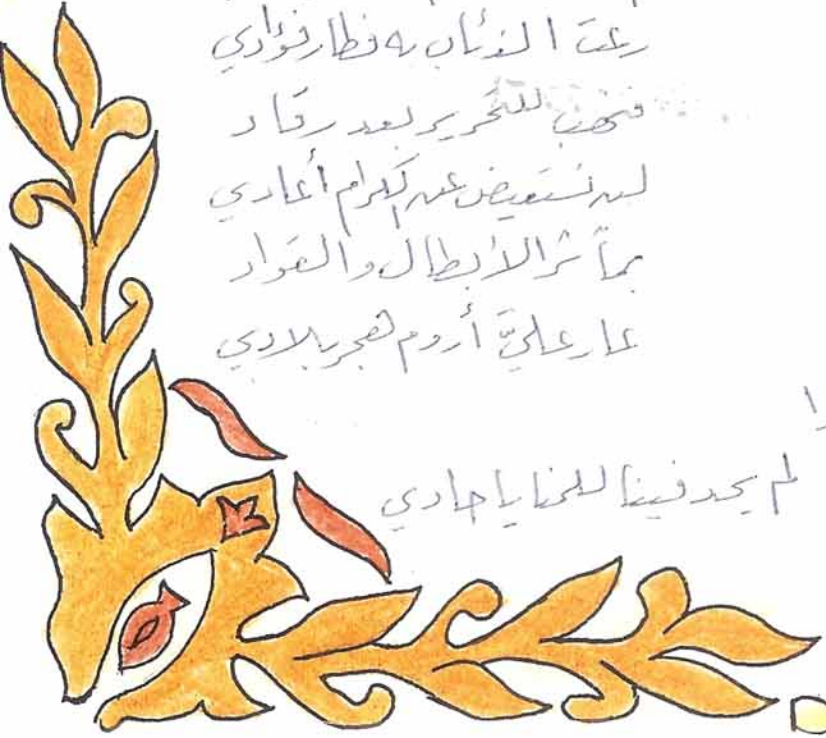 رعت الذئاب به فطار فؤادي
فتهب للتحرير بعد رقاد
لن نستعيض عن الكرام أعادي
بمآثر الأبطال والقواد
عار عليّ أروم هجر بلادي
وا
لم يحد فينا للمنايا حادي